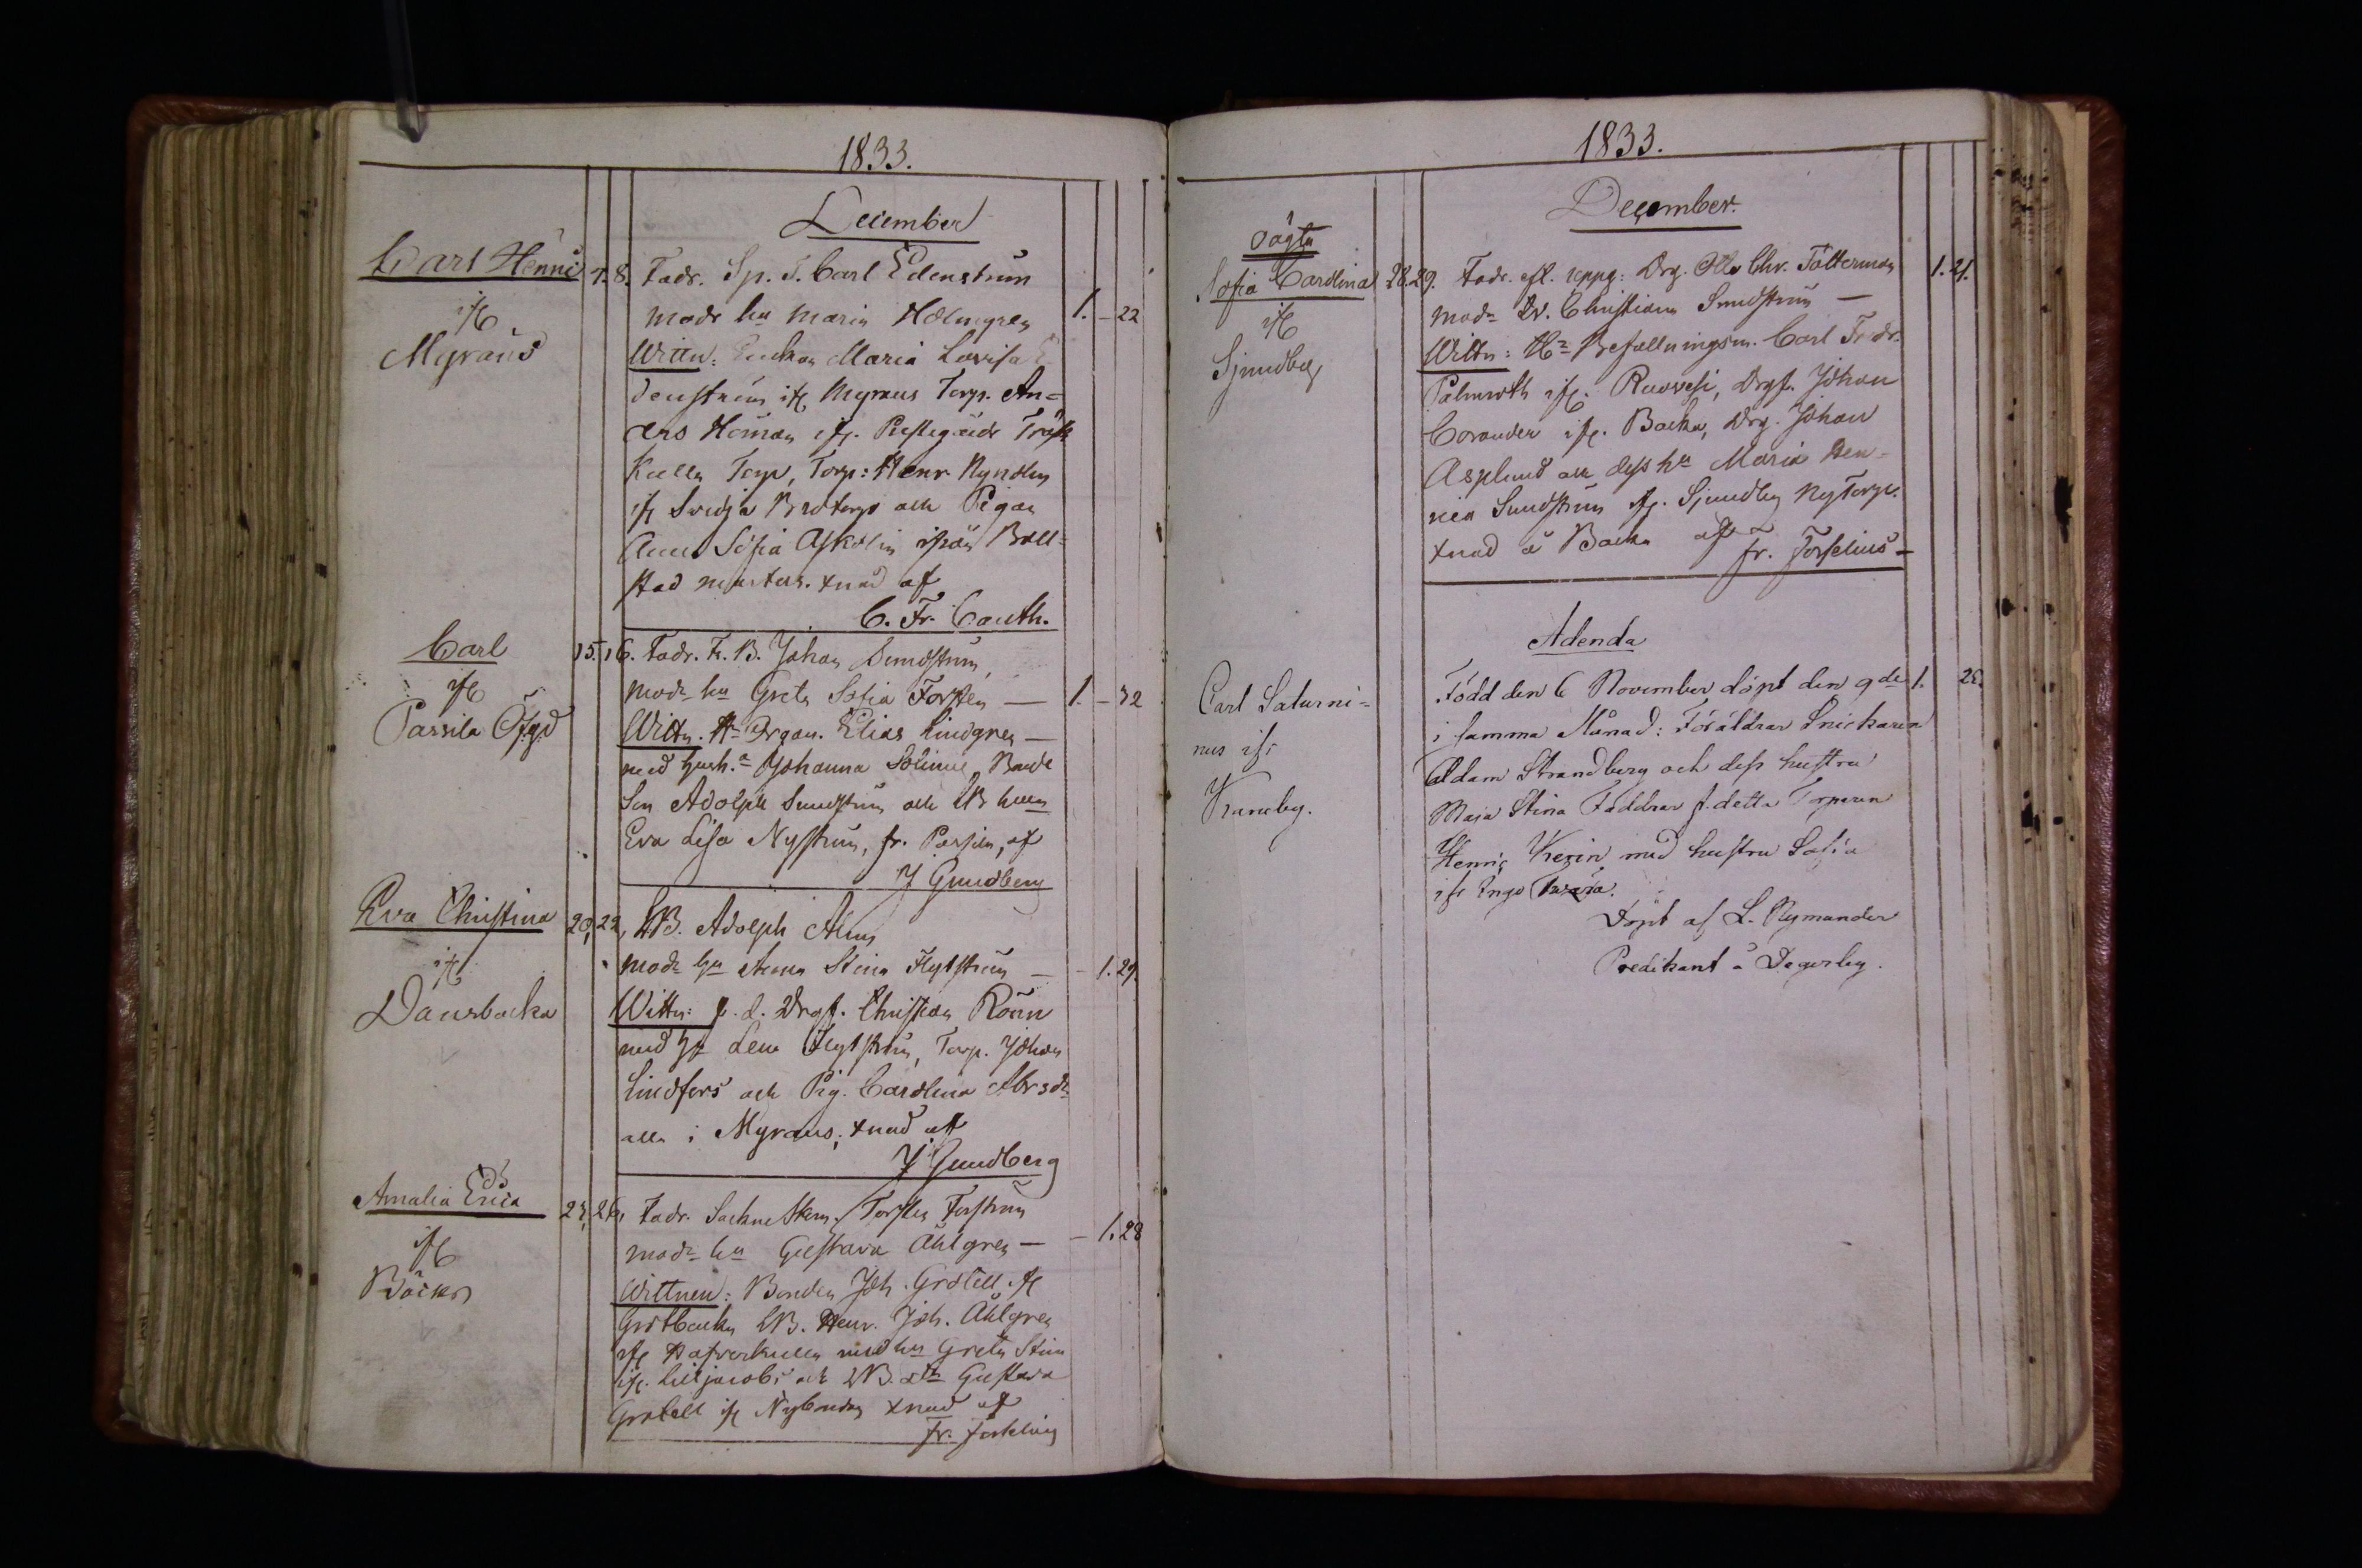 1833.
December
Carl Henric
ifr
Myraus
7. 8. Fadr. Sp. S. Carl Edenström
modr hu Maria Holmgren 1. - 22
Wittn: Enkan Maria Lovisa E
denström ifr Myraus Torp. An=
ders Höman ifr. Prestegårds Träsk
Kulla Torp, Torp: Henr Nyholm
ifr Svidja Torp och Pigan
Anna Sofia Askolin ifrån Båll=
stad xnad af
C. Fr. Cauth.
Carl
ifr
Passila
15. 16. Fadr. Johan Sundström
modr hu Greta Sofia Forstén — 1. - 32
Wittn. Hr Organ. Elias Lindgren —
med Johanna Bonde
Son Adolph Sundström och
Eva Lisa Nyström, fr. Passila, af
J Grundberg
Eva Christina
ifr
Dansbacka
20, 22, Adolph
modr hu Anna Stina Flytström — 1. 29.
Wittn: f. d. Drgf. Christian Rönn
med Lena Flytström, Torp. Johan
Lindfors och Pig. Carolina Abrsdr
alla i Myraus, xnad af
J Grundberg
Amalia Erica
ifr
Böckes
25, 26, Fadr. Torsten Forström
modr hu Gustava Åhlgren — - 1. 28
Wittnen: Bonden Joh. Grotell ifr
Grotbacka Henr. Joh. Åhlgren
ifr Hafverkulla med hu Greta Stina
ifr. Liljacobs och Gustava
Grotell ifr Nybondas xnad af
Fr. Forselius
1833.
December.
Oägta
Sofia Carolina
ifr
Sjundby
28. 29. Fadr. Drg. Otto Chr. Fälterman 1. 21.
modr Christiana Sundström —
Wittn: Hr Befallningsm. Carl Fredr.
Palmroth ifr. Ruovesi, Drgf. Johan
Corander ifr. Backa, Drg. Johan
Asplund och dess hu Maria Hen-
rica Sundström ifr. Sjundby NyTorp.
xnad å Backa af
Fr. Forselius —
Adenda
Carl Saturni=
nus ifr
Kaneby.
Född den 6 November döpt den 9de 1. 28.
i samma Månad: Föräldrar Snickaren
Adam Strandberg och dess hustru
Maja Stina Faddrar f. detta Torparen
Henric Krein med hustru Sofia
ifr Ingo
Döpt af L. Nymander
Predikant å Degerby.